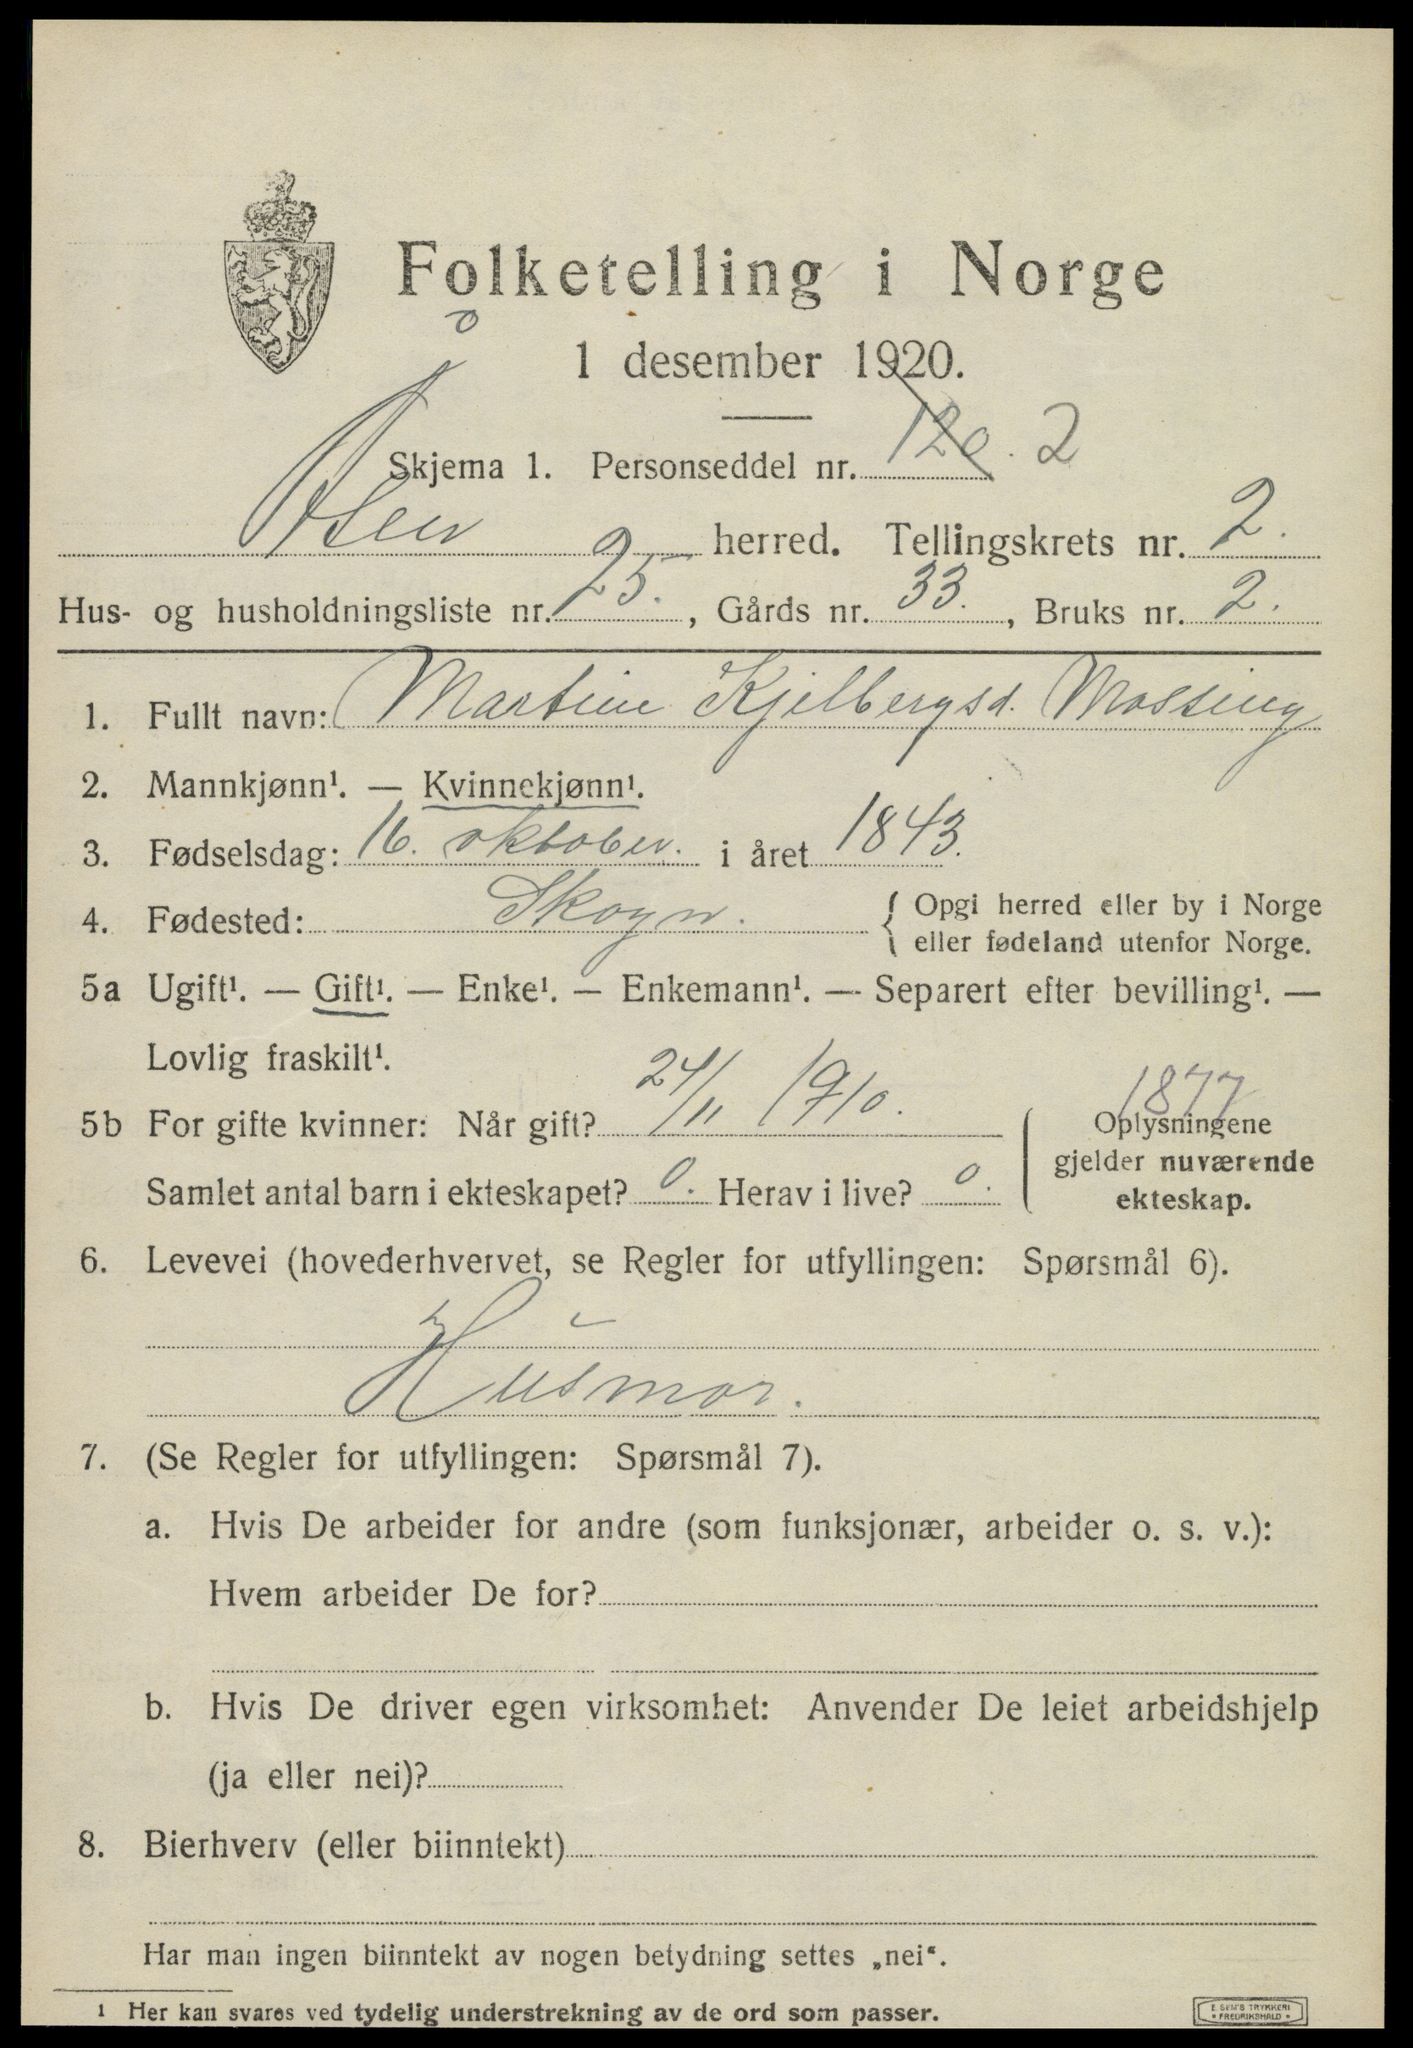 Folketelling i Norge
1 desember 1920.
Skjema 1. Personseddel nr. 120. 2
Åsen herred. Tellingskrets nr. 2.
Hus- og husholdningsliste nr. 25., Gårds nr. 33., Bruks nr. 2.
1. Fullt navn: Martine Kjelbergsd. Mossing
2. Mannkjønn¹. — Kvinnekjønn¹.
3. Fødselsdag: 16. oktober. i året 1843.
4. Fødested: Skogn. { Opgi herred eller by i Norge
eller fødeland utenfor Norge.
5a Ugift¹. — Gift¹. — Enke¹. — Enkemann¹. — Separert efter bevilling¹. —
Lovlig fraskilt¹.
1877
5b For gifte kvinner: Når gift? 24/11 1910. Oplysningene
gjelder nuværende
Samlet antal barn i ekteskapet? 0. Herav i live? 0. ekteskap.
6. Levevei (hovederhvervet, se Regler for utfyllingen: Spørsmål 6).
Husmor.
7. (Se Regler for utfyllingen: Spørsmål 7).
a. Hvis De arbeider for andre (som funksjonær, arbeider o. s. v.):
Hvem arbeider De for?
b. Hvis De driver egen virksomhet: Anvender De leiet arbeidshjelp
(ja eller nei)?
8. Bierhverv (eller biinntekt)
Har man ingen biinntekt av nogen betydning settes „nei“.
¹ Her kan svares ved tydelig understrekning av de ord som passer.
E. SEM'S TRYKKERI
• FREDRIKSHALD •